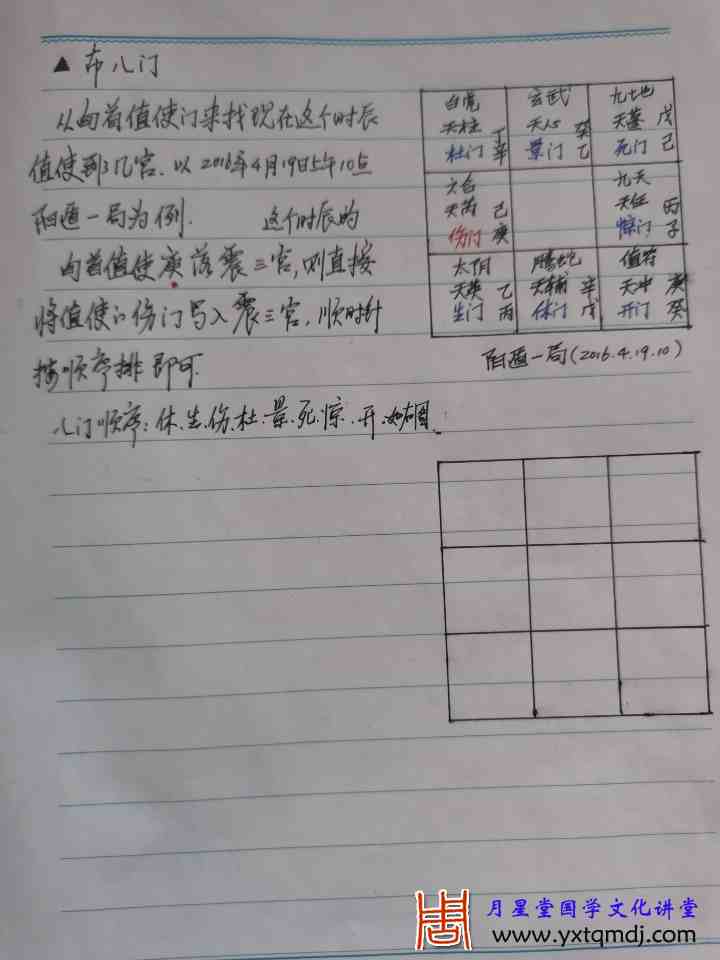 ▲ 布八门
从旬首值使门来找现在这个时辰
值使到了几宫. 以2016年4月19日上午10点
阳遁一局为例. 这个时辰的
旬首值使庚落震三宫,则直接
将值使门伤门写入震三宫, 顺时针
按顺序排即可.
八门顺序: 休.生.伤.杜.景.死.惊.开.如右图.
白虎 玄武 九地
天柱 丁 天心 癸 天蓬 戊
杜门 辛 景门 乙 死门 己
六合 九天
天芮 己 天任 丙
伤门 庚 惊门 子
太阴 腾蛇 值符
天英 乙 天辅 辛 天冲 庚
生门 丙 休门 戊 开门 癸
阳遁一局(2016.4.19.10)
月星堂国学文化讲堂
www.yxtqmdj.com